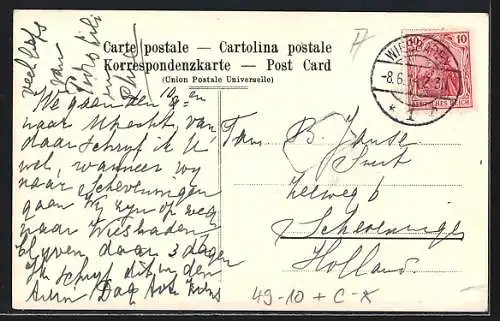 veel liefs
van
Carte postale – Cartolina postale
Korrespondenzkarte – Post Card
(Union Postale Universelle)
WIESBADEN
-8.6.
* 1
10
DEUTSCHES REICH
We gaan den 10en
naar Utrecht, van
daar schryf ik U
wel, wanneer wy
naar Scheveningen
gaan Wy zyn op weg
naar Wiesbaden,
blyven daar 3 dagen
Ik schryf dit in den
trein Dag
Fam. B. Janse
Smit
6
Scheveningen
Holland.
49-10 + C-X